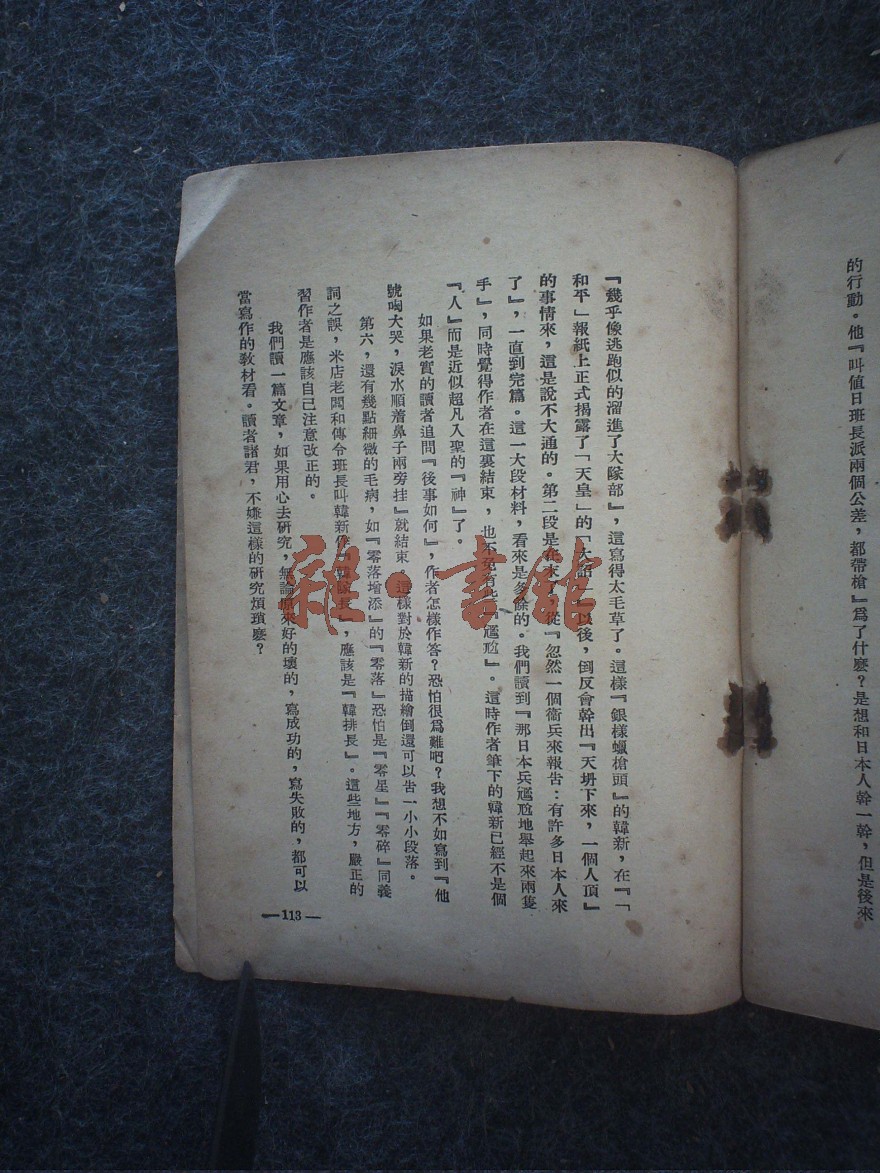 的行動。他『叫值日班長派兩個公差，都帶槍』爲了什麽？是想和日本人幹一幹，但是後來
『幾乎像逃跑似的溜進了大隊部』，這寫得太毛草了。這樣『銀樣蠟槍頭』的韓新，在『「
和平」報紙上正式揭露了「天皇」的「大詔」』以後，倒反會幹出『天坍下來，一個人頂』
的事情來，這是說不大通的。第二段是在末了，從『忽然一個衞兵來報告：有許多日本人來
了』，一直到完篇。這一大段材料，看來是多餘的。我們讀到『那日本兵尷尬地舉起來兩隻
手』，同時覺得作者在這裏結束，也不免有些『尷尬』。這時作者筆下的韓新已經不是個
『人』而是近似超凡入聖的『神』了。
如果老實的讀者追問『後事如何』，作者怎樣作答？恐怕很爲難吧？我想不如寫到『他
號啕大哭，淚水順着鼻子兩旁挂』就結束，這樣對於韓新的描繪倒還可以告一小小段落。
第六，還有幾點細微的毛病，如『零落增添』的『零落』恐怕是『零星』『零碎』同義
詞之誤，米店老闆和傳令班長叫韓新作『韓隊長』，應該是『韓排長』。這些地方，嚴正的
習作者是應該自己注意改正的。
我們讀一篇文章，如果用心去研究，無論原來好的壞的，寫成功的，寫失敗的，都可以
當寫作的教材看。讀者諸君，不嫌這樣的研究煩瑣麽？
—113—
雜·書館